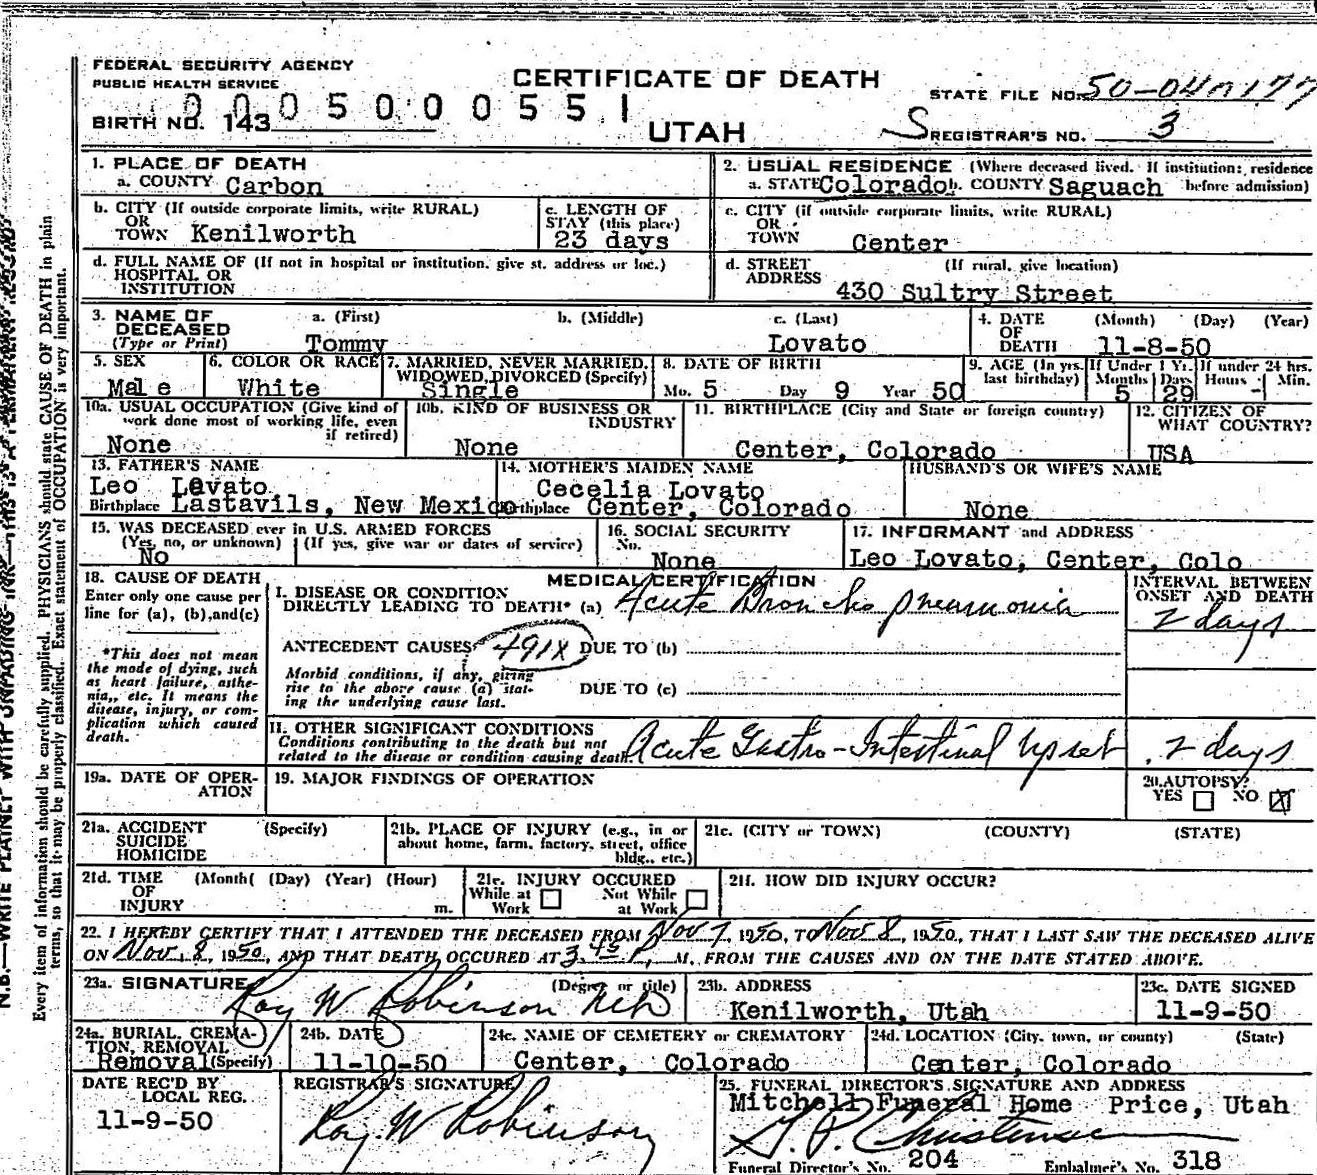 FEDERAL SECURITY AGENCY
PUBLIC HEALTH SERVICE
CERTIFICATE OF DEATH
STATE FILE NO.
BIRTH NO. 143
0005000551
UTAH
REGISTRAR'S NO. 3
1. PLACE OF DEATH
a. COUNTY Carbon
2. USUAL RESIDENCE (Where deceased lived. If institution: residence
a. STATE Colorado b. COUNTY Saguach before admission)
b. CITY (If outside corporate limits, write RURAL)
OR
TOWN Kenilworth
c. LENGTH OF
STAY (this place)
23 days
c. CITY (if outside corporate limits, write RURAL)
OR
TOWN Center
d. FULL NAME OF (If not in hospital or institution, give st. address or loc.)
HOSPITAL OR
INSTITUTION
d. STREET (If rural, give location)
ADDRESS
430 Sultry Street
3. NAME OF a. (First) b. (Middle) c. (Last)
DECEASED
(Type or Print) Tommy Lovato
4. DATE (Month) (Day) (Year)
OF
DEATH 11-8-50
5. SEX
Male
6. COLOR OR RACE
White
7. MARRIED, NEVER MARRIED,
WIDOWED, DIVORCED (Specify)
Single
8. DATE OF BIRTH
Mo. 5 Day 9 Year 50
9. AGE (In yrs. last birthday)
If Under 1 Yr. Months 5 Days 29
If under 24 hrs. Hours - Min.
10a. USUAL OCCUPATION (Give kind of
work done most of working life, even
if retired)
None
10b. KIND OF BUSINESS OR
INDUSTRY
None
11. BIRTHPLACE (City and State or foreign country)
Center, Colorado
12. CITIZEN OF
WHAT COUNTRY?
USA
13. FATHER'S NAME
Leo Lovato
Birthplace Lastavils, New Mexico
14. MOTHER'S MAIDEN NAME
Cecelia Lovato
Birthplace Center, Colorado
HUSBAND'S OR WIFE'S NAME
None
15. WAS DECEASED ever in U.S. ARMED FORCES
(Yes, no, or unknown) (If yes, give war or dates of service)
No
16. SOCIAL SECURITY
No.
None
17. INFORMANT and ADDRESS
Leo Lovato, Center, Colo
18. CAUSE OF DEATH
Enter only one cause per
line for (a), (b), and (c)
*This does not mean
the mode of dying, such
as heart failure, asthe-
nia, etc. It means the
disease, injury, or com-
plication which caused
death.
MEDICAL CERTIFICATION
I. DISEASE OR CONDITION
DIRECTLY LEADING TO DEATH* (a) Acute Broncho pneumonia
INTERVAL BETWEEN
ONSET AND DEATH
2 days
ANTECEDENT CAUSES 491X DUE TO (b)
Morbid conditions, if any, giving
rise to the above cause (a) stat-
ing the underlying cause last.
DUE TO (c)
II. OTHER SIGNIFICANT CONDITIONS
Conditions contributing to the death but not
related to the disease or condition causing death.
Acute Gastro-Intestinal Upset 2 days
19a. DATE OF OPER-
ATION
19. MAJOR FINDINGS OF OPERATION
20. AUTOPSY?
YES NO X
21a. ACCIDENT (Specify)
SUICIDE
HOMICIDE
21b. PLACE OF INJURY (e.g., in or
about home, farm, factory, street, office
bldg., etc.)
21c. (CITY or TOWN) (COUNTY) (STATE)
21d. TIME (Month( (Day) (Year) (Hour)
OF
INJURY m.
21e. INJURY OCCURED
While at Work Not While at Work
21f. HOW DID INJURY OCCUR?
22. I HEREBY CERTIFY THAT I ATTENDED THE DECEASED FROM Nov 7, 1950, TO Nov 8, 1950, THAT I LAST SAW THE DECEASED ALIVE
ON Nov. 8, 1950, AND THAT DEATH OCCURED AT 3 45 P. M. FROM THE CAUSES AND ON THE DATE STATED ABOVE.
23a. SIGNATURE (Degree or title)
Roy W Robinson MD
23b. ADDRESS
Kenilworth, Utah
23c. DATE SIGNED
11-9-50
24a. BURIAL, CREMA-
TION, REMOVAL
Removal (Specify)
24b. DATE
11-10-50
24c. NAME OF CEMETERY or CREMATORY
Center, Colorado
24d. LOCATION (City, town, or county) (State)
Center, Colorado
DATE REC'D BY
LOCAL REG.
11-9-50
REGISTRAR'S SIGNATURE
Roy W Robinson
25. FUNERAL DIRECTOR'S SIGNATURE AND ADDRESS
Mitchell Funeral Home Price, Utah
Funeral Director's No. 204 Embalmer's No. 318
N.B.—WRITE PLAINLY WITH UNFADING INK—THIS IS A PERMANENT RECORD
Every item of information should be carefully supplied. PHYSICIANS should state CAUSE OF DEATH in plain
terms, so that it may be properly classified. Exact statement of OCCUPATION is very important.